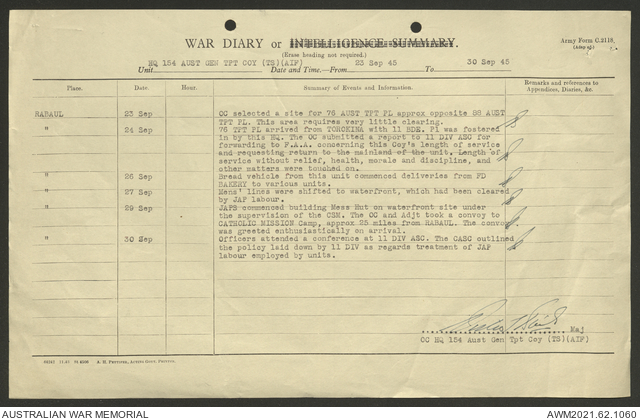 WAR DIARY or INTELLIGENCE SUMMARY.
(Erase heading not required.)
Army Form C.2118.
HQ 154 AUST GEN TPT COY (TS)(AIF) 23 Sep 45 30 Sep 45
Unit Date and Time.—From To
Place. Date. Hour. Summary of Events and Information. Remarks and references to Appendices, Diaries, &c.
RABAUL 23 Sep OC selected a site for 76 AUST TPT PL approx opposite 88 AUST
TPT PL. This area requires very little clearing.
" 24 Sep 76 TPT PL arrived from TOROKINA with 11 BDE. Pl was fostered
in by this HQ. The OC submitted a report to 11 DIV ASC for
forwarding to F.A.A. concerning this Coy's length of service
and requesting return to the mainland of the unit. Length of
service without relief, health, morale and discipline, and
other matters were touched on.
" 26 Sep Bread vehicle from this unit commenced deliveries from FD
BAKERY to various units.
" 27 Sep Mens' lines were shifted to waterfront, which had been cleared
by JAP labour.
" 29 Sep JAPS commenced building Mess Hut on waterfront site under
the supervision of the CSM. The OC and Adjt took a convoy to
CATHOLIC MISSION Camp, approx 25 miles from RABAUL. The convoy
was greeted enthusiastically on arrival.
" 30 Sep Officers attended a conference at 11 DIV ASC. The CASC outlined
the policy laid down by 11 DIV as regards treatment of JAP
labour employed by units.
Maj
OC HQ 154 Aust Gen Tpt Coy (TS)(AIF)
AUSTRALIAN WAR MEMORIAL AWM2021.62.1060